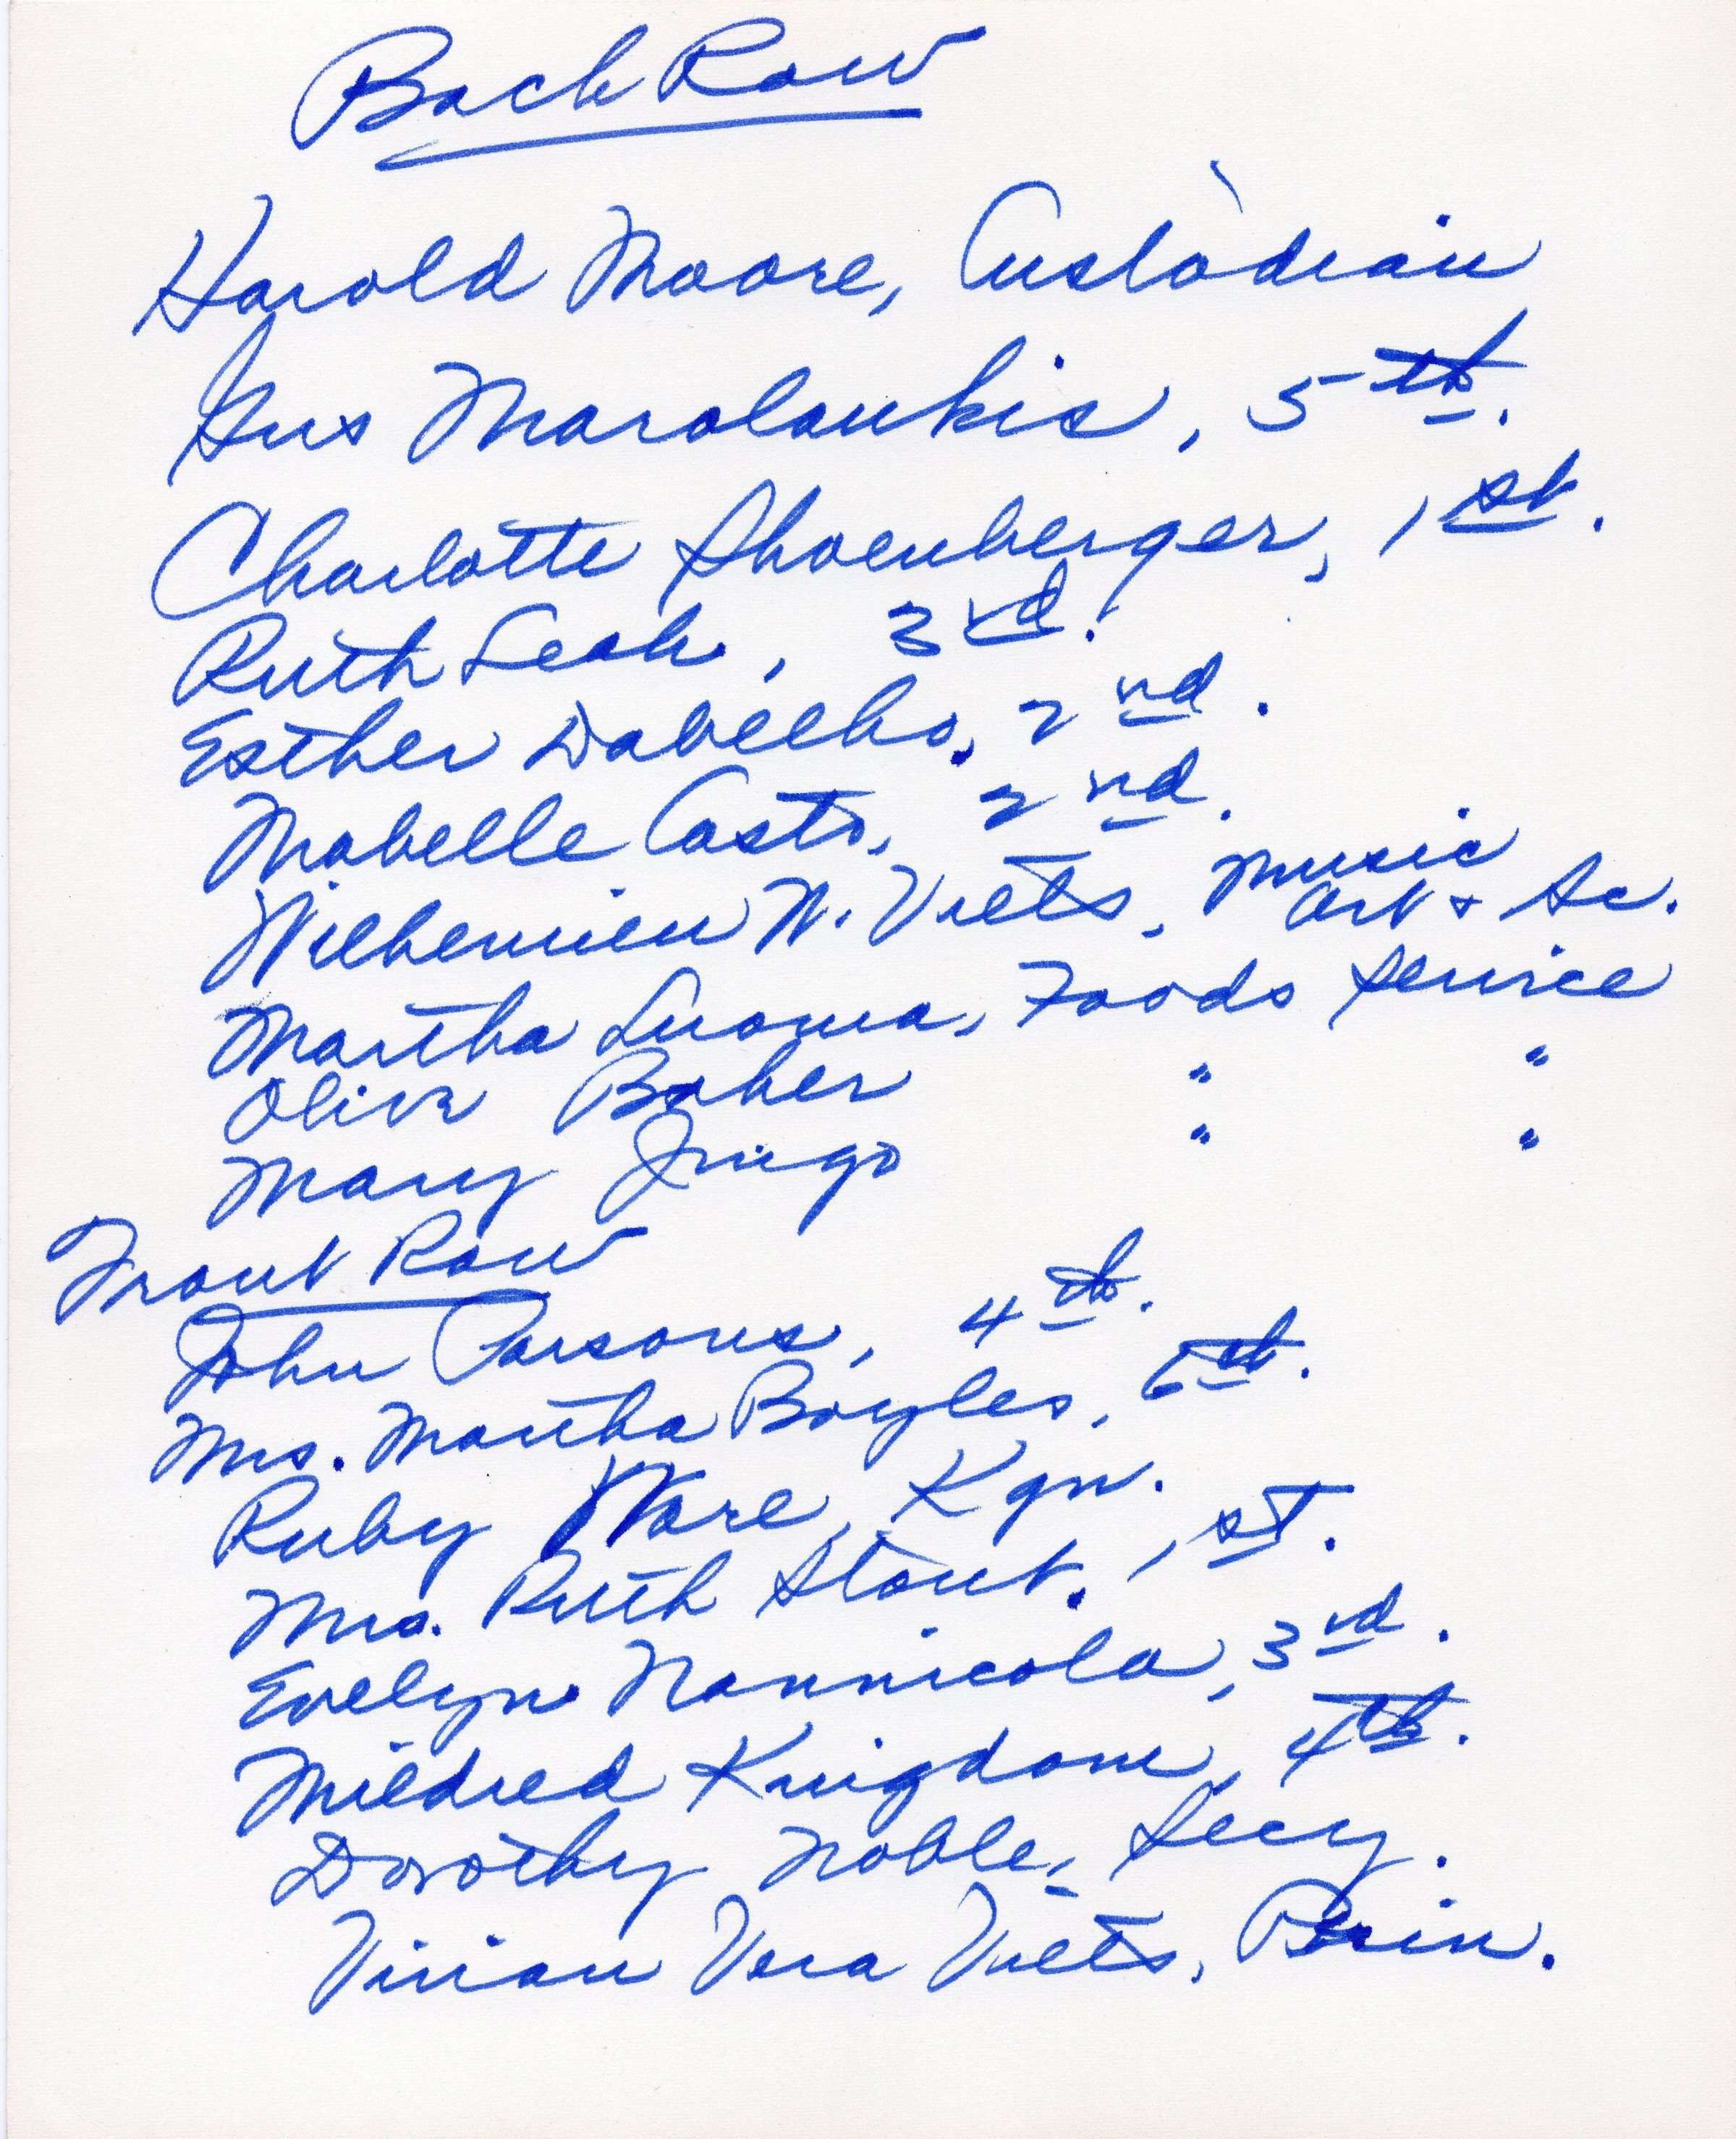 Back Row
Harold Moore, Custodian
Gus Marolaukis, 5th.
Charlotte Shoenberger, 1st.
Ruth Leah, 3rd.
Esther 2nd.
Mabelle Casto, 2nd.
W. Viets, Music
Art & Sc.
Martha Luoma, Foods Service
Olive Baker " "
Mary Jingo " "
Front Row
John Parsons, 4th.
Mrs. Martha Boyles,
Ruby Ware, Kgn.
Mrs. Ruth Stout. 1st.
Evelyn Nannicola, 3rd.
Mildred Kingdom, 4th.
Dorothy Noble, Secy.
Vivian Vera Viets, Prin.